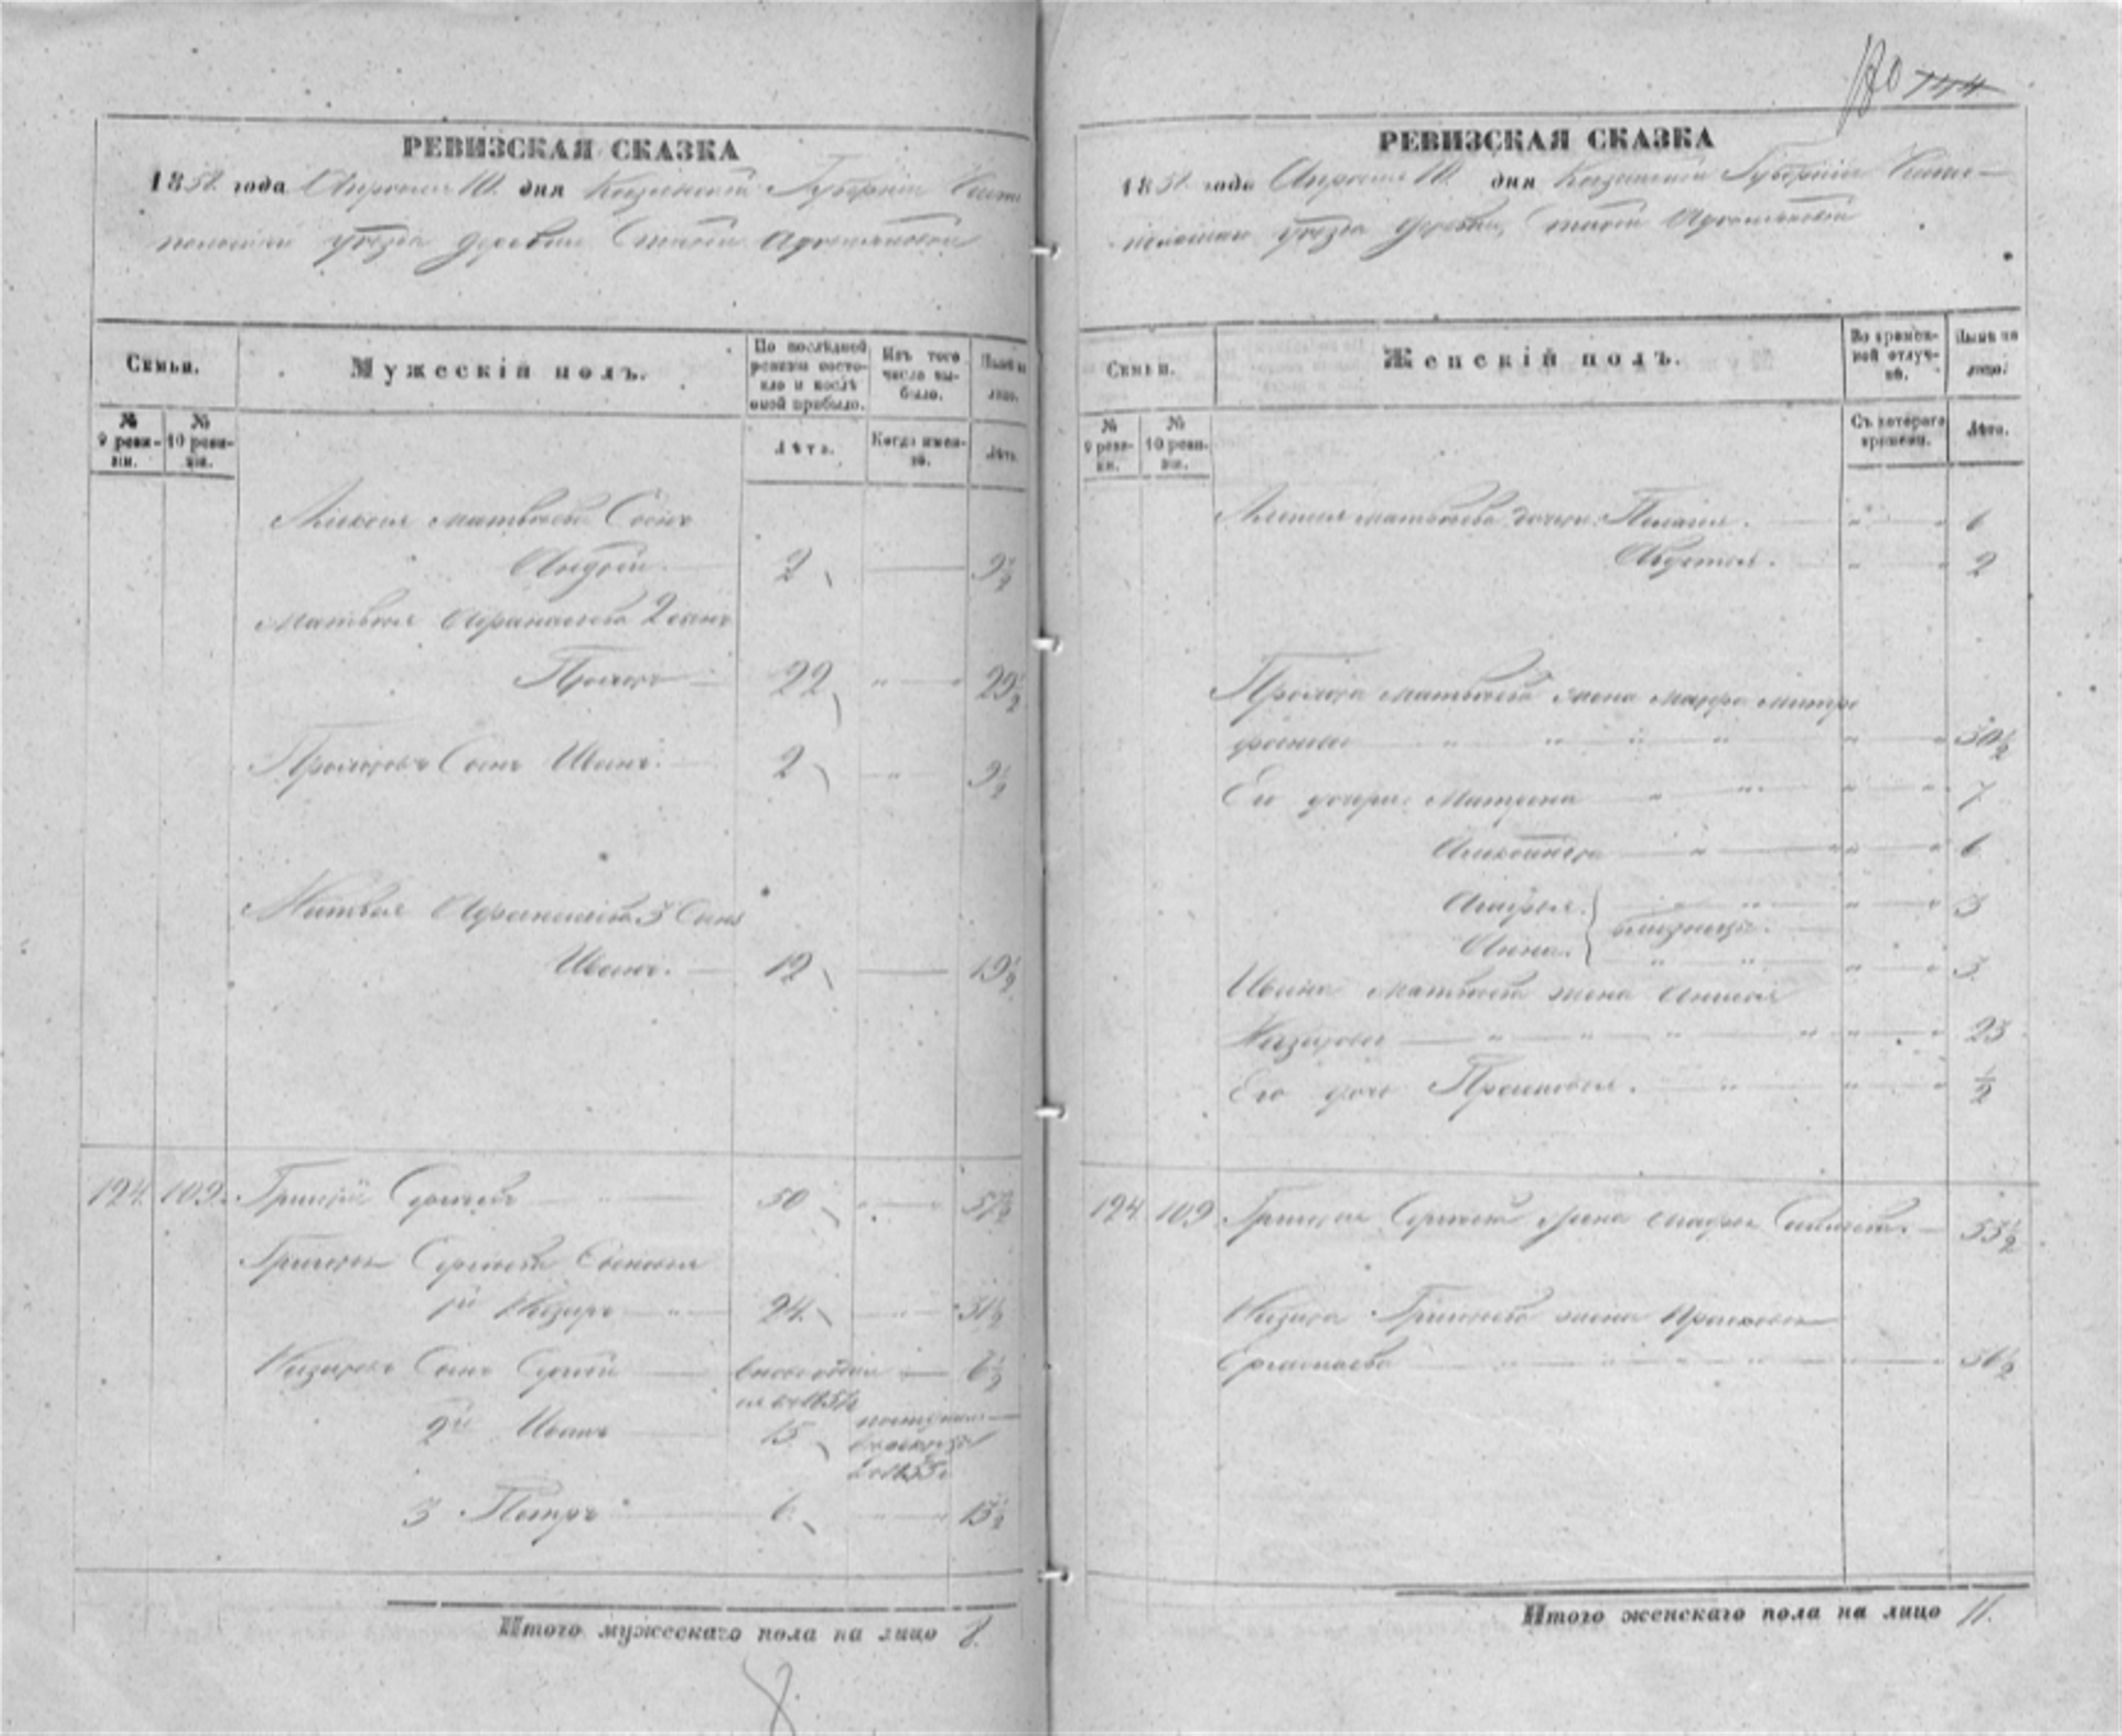 180 744
РЕВИЗСКАЯ СКАЗКА
1858 года Апреля 10 дня Казанской Губернии Чисто
польскаго уезда деревни Старой Адрамановки
Семьи.
Мужескій полъ.
По послѣдней ревизіи состояло и послѣ оной прибыло.
Изъ того числа выбыло.
Нынѣ на лицо.
№ 9 ревизіи.
№ 10 ревизіи.
Лѣта.
Когда именно.
Лѣта.
Алексея Матвеева Сынъ
Андрей 2 9½
Матвея Афанасьева 2 сынъ
Прохоръ 22 29½
Прохоровъ Сынъ Иванъ 2 9½
Матвея Афанасьева 3 Сынъ
Иванъ. 12 19½
124 109 Григорій Сергеевъ 50 57½
Григорья Сергеева Сыновья
1й Назаръ 24 31½
Назаровъ Сынъ Сергей 6½
2й Иванъ 15
3 Петръ 6 13½
Итого мужескаго пола на лицо 8.
8
РЕВИЗСКАЯ СКАЗКА
1858 года Апреля 10 дня Казанской Губернии Чисто-
польскаго уезда деревни Старой Адрамановки
Семьи.
Женскій полъ.
Во временной отлучкѣ.
Нынѣ на лицо.
№ 9 ревизіи.
№ 10 ревизіи.
Съ котораго времени.
Лѣта.
Алексея Матвеева дочери: Пелагея. 6
Авдотья. 2
Прохора Матвеева жена Марфа Митро
фанова 30½
Его дочери: Матрена 7
6
Агафья. } близнецы. 3
Анна. } 3
Ивана Матвеева жена
Назарова 23
Его дочь Прасковья. ½
124 109 Григорья Сергеева жена 53½
Назара Григорьева жена Прасковья
36½
Итого женскаго пола на лицо 11.